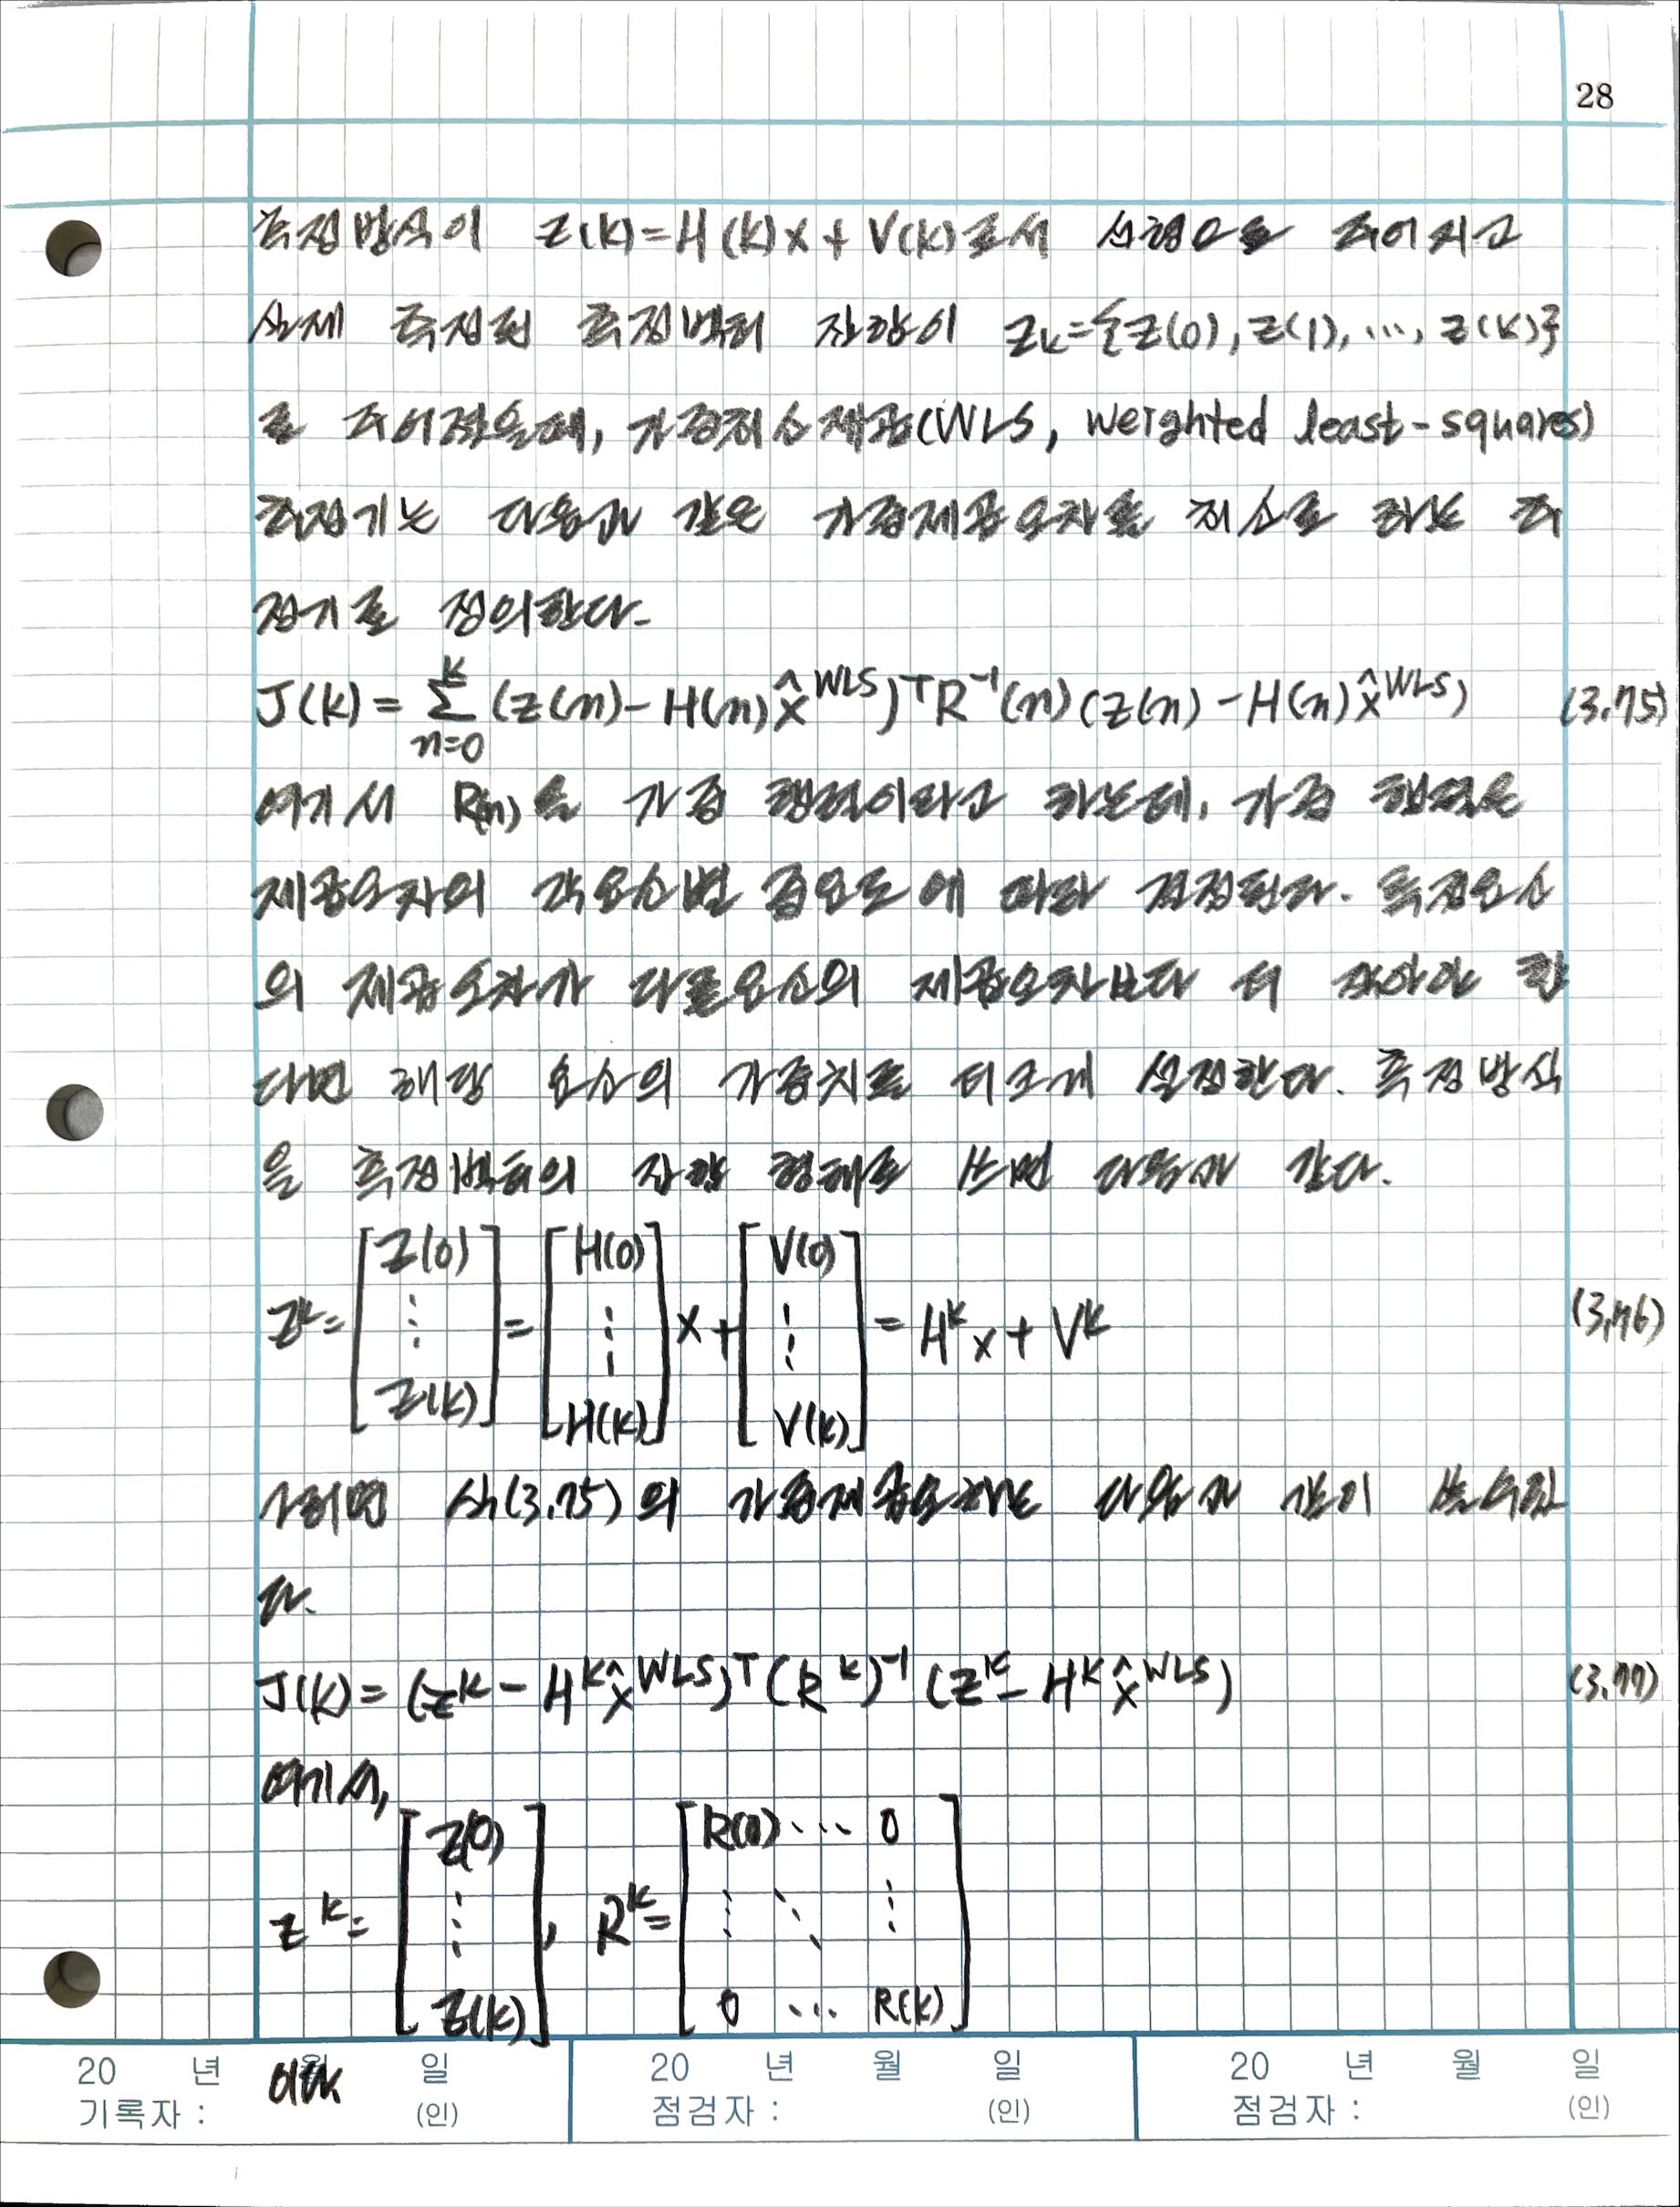 28
측정방식이 z(k)=H(k)x+v(k)로서 선형으로 주어지고
실제 측정된 측정벡터 집합이 Zk={z(0), z(1), ..., z(k)}
로 주어졌을때, 가중최소제곱(WLS, weighted least-squares)
추정기는 다음과 같은 가중제곱오차를 최소로 하는 추
정기로 정의한다.
J(k) = Σ_{n=0}^{k} (z(n) - H(n)x̂^{WLS})^T R^{-1}(n) (z(n) - H(n)x̂^{WLS}) (3.75)
여기서 R(n)을 가중 행렬이라고 하는데, 가중 행렬은
제곱오차의 각요소별 중요도에 따라 결정된다. 특정요소
의 제곱오차가 다른요소의 제곱오차보다 더 작아야 한
다면 해당 요소의 가중치를 더크게 설정한다. 측정방식
을 측정벡터의 집합 형태로 쓰면 다음과 같다.
z^k = [z(0) ⋮ z(k)] = [H(0) ⋮ H(k)] x + [V(0) ⋮ V(k)] = H^k x + V^k (3.76)
그러면 식(3.75)의 가중제곱오차는 다음과 같이 쓸수있
다.
J(k) = (z^k - H^k x̂^{WLS})^T (R^k)^{-1} (z^k - H^k x̂^{WLS}) (3.77)
여기서,
z^k = [z(0) ⋮ z(k)], R^k = [R(0) ⋯ 0 ⋮ ⋱ ⋮ 0 ⋯ R(k)]
이다.
20 년 월 일 20 년 월 일 20 년 월 일
기록자 : (인) 점검자 : (인) 점검자 : (인)